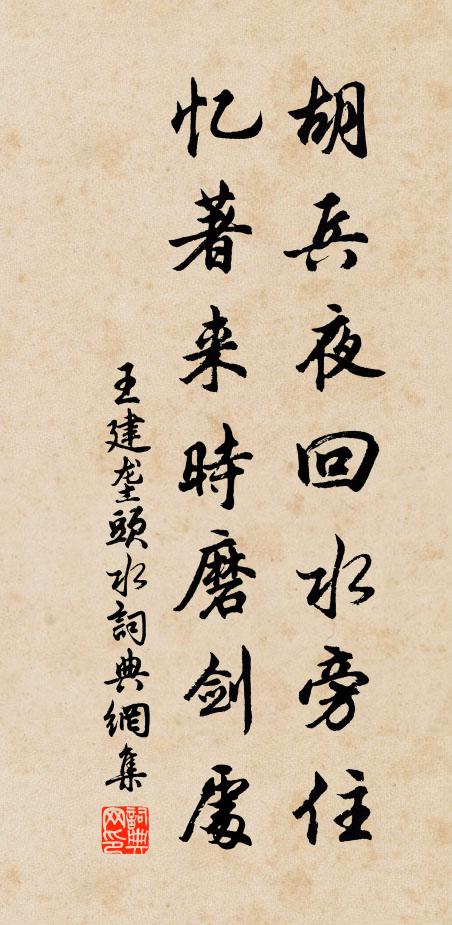 胡兵夜回水旁住
忆著来時磨剑處
王建垄頭水詞典網集
詞典网印